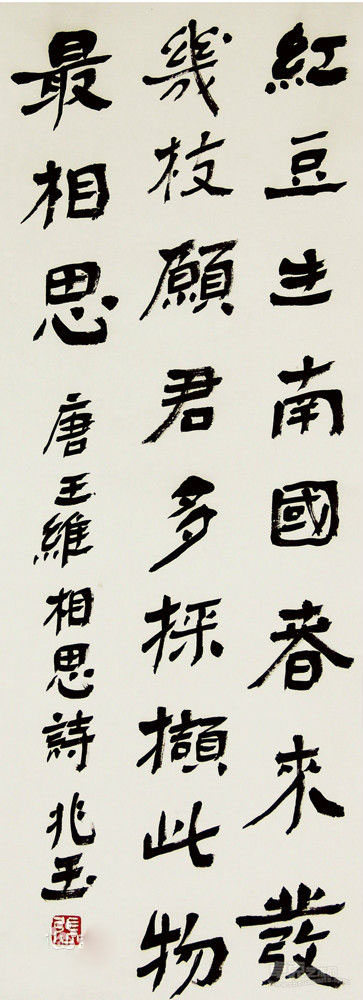 紅豆生南國春來發
幾枝願君多採擷此物
最相思 唐王維相思詩 兆玉